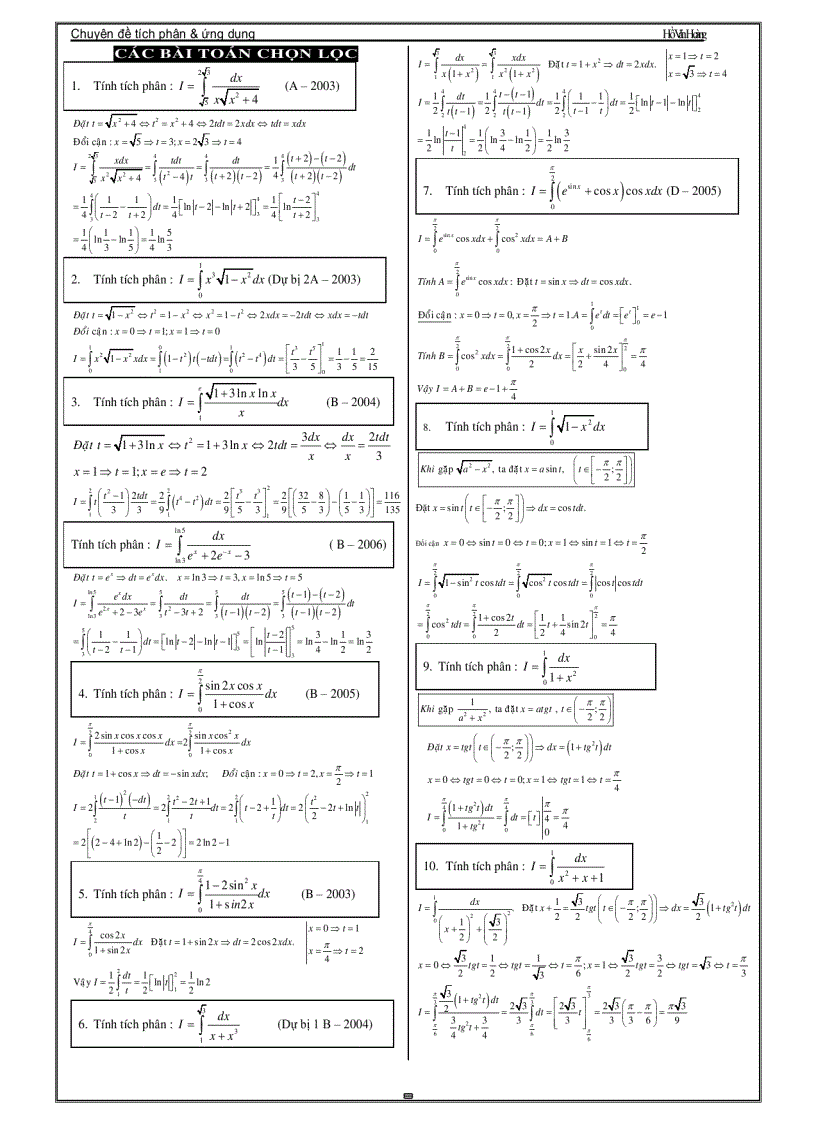 Chuyên đề tích phân & ứng dụng
Hồ Văn Hoàng
CÁC BÀI TOÁN CHỌN LỌC
1. Tính tích phân : I = ∫_{√5}^{2√3} dx / (x√(x²+4)) (A – 2003)
Đặt t = √(x²+4) ⇔ t² = x²+4 ⇔ 2tdt = 2xdx ⇔ tdt = xdx
Đổi cận : x = √5 ⇒ t = 3; x = 2√3 ⇒ t = 4
I = ∫_{√5}^{2√3} xdx/(x²√(x²+4)) = ∫_3^4 tdt/((t²−4)t) = ∫_3^4 dt/((t+2)(t−2)) = 1/4 ∫_3^4 ((t+2)−(t−2))/((t+2)(t−2)) dt
= 1/4 ∫_3^4 (1/(t−2) − 1/(t+2)) dt = 1/4 [ln|t−2| − ln|t+2|]_3^4 = 1/4 [ln|(t−2)/(t+2)|]_3^4
= 1/4 (ln 1/3 − ln 1/5) = 1/4 ln 5/3
2. Tính tích phân : I = ∫_0^1 x³√(1−x²) dx (Dự bị 2A – 2003)
Đặt t = √(1−x²) ⇔ t² = 1−x² ⇔ x² = 1−t² ⇔ 2xdx = −2tdt ⇔ xdx = −tdt
Đổi cận : x = 0 ⇒ t = 1; x = 1 ⇒ t = 0
I = ∫_0^1 x²√(1−x²) xdx = ∫_1^0 (1−t²)t(−tdt) = ∫_0^1 (t²−t⁴) dt = [t³/3 − t⁵/5]_0^1 = 1/3 − 1/5 = 2/15
3. Tính tích phân : I = ∫_1^e √(1+3ln x) ln x / x dx (B – 2004)
Đặt t = √(1+3ln x) ⇔ t² = 1+3ln x ⇔ 2tdt = 3dx/x ⇔ dx/x = 2tdt/3
x = 1 ⇒ t = 1; x = e ⇒ t = 2
I = ∫_1^2 t((t²−1)/3) 2tdt/3 = 2/9 ∫_1^2 (t⁴−t²) dt = 2/9 [t⁵/5 − t³/3]_1^2 = 2/9 [(32/5 − 8/3) − (1/5 − 1/3)] = 116/135
Tính tích phân : I = ∫_{ln3}^{ln5} dx/(e^x + 2e^{−x} − 3) ( B – 2006)
Đặt t = e^x ⇒ dt = e^x dx. x = ln 3 ⇒ t = 3, x = ln 5 ⇒ t = 5
I = ∫_{ln3}^{ln5} e^x dx/(e^{2x} + 2 − 3e^x) = ∫_3^5 dt/(t²−3t+2) = ∫_3^5 dt/((t−1)(t−2)) = ∫_3^5 ((t−1)−(t−2))/((t−1)(t−2)) dt
= ∫_3^5 (1/(t−2) − 1/(t−1)) dt = [ln|t−2| − ln|t−1|]_3^5 = [ln|(t−2)/(t−1)|]_3^5 = ln 3/4 − ln 1/2 = ln 3/2
4. Tính tích phân : I = ∫_0^{π/2} sin 2x cos x/(1+cos x) dx (B – 2005)
I = ∫_0^{π/2} 2 sin x cos x cos x/(1+cos x) dx = 2∫_0^{π/2} sin x cos² x/(1+cos x) dx
Đặt t = 1+cos x ⇒ dt = −sin xdx; Đổi cận : x = 0 ⇒ t = 2, x = π/2 ⇒ t = 1
I = 2∫_2^1 (t−1)²(−dt)/t = 2∫_1^2 (t²−2t+1)/t dt = 2∫_1^2 (t − 2 + 1/t) dt = 2(t²/2 − 2t + ln|t|)_1^2
= 2[(2−4+ln 2) − (1/2 − 2)] = 2 ln 2 − 1
5. Tính tích phân : I = ∫_0^{π/4} (1−2sin² x)/(1+sin2x) dx (B – 2003)
I = ∫_0^{π/4} cos 2x/(1+sin 2x) dx Đặt t = 1+sin 2x ⇒ dt = 2cos 2xdx. x = 0 ⇒ t = 1
x = π/4 ⇒ t = 2
Vậy I = 1/2 ∫_1^2 dt/t = 1/2 [ln|t|]_1^2 = 1/2 ln 2
6. Tính tích phân : I = ∫_1^{√3} dx/(x+x³) (Dự bị 1 B – 2004)
I = ∫_1^{√3} dx/(x(1+x²)) = ∫_1^{√3} xdx/(x²(1+x²)) Đặt t = 1+x² ⇒ dt = 2xdx. x = 1 ⇒ t = 2
x = √3 ⇒ t = 4
I = 1/2 ∫_2^4 dt/(t(t−1)) = 1/2 ∫_2^4 (t−(t−1))/(t(t−1)) dt = 1/2 ∫_2^4 (1/(t−1) − 1/t) dt = 1/2 [ln|t−1| − ln|t|]_2^4
= 1/2 ln|(t−1)/t| |_2^4 = 1/2 (ln 3/4 − ln 1/2) = 1/2 ln 3/2
7. Tính tích phân : I = ∫_0^{π/2} (e^{sin x} + cos x) cos xdx (D – 2005)
I = ∫_0^{π/2} e^{sin x} cos xdx + ∫_0^{π/2} cos² xdx = A + B
Tính A = ∫_0^{π/2} e^{sin x} cos xdx : Đặt t = sin x ⇒ dt = cos xdx.
Đổi cận : x = 0 ⇒ t = 0, x = π/2 ⇒ t = 1. A = ∫_0^1 e^t dt = [e^t]_0^1 = e − 1
Tính B = ∫_0^{π/2} cos² xdx = ∫_0^{π/2} (1+cos 2x)/2 dx = [x/2 + sin 2x/4]_0^{π/2} = π/4
Vậy I = A + B = e − 1 + π/4
8. Tính tích phân : I = ∫_0^1 √(1−x²) dx
Khi gặp √(a²−x²), ta đặt x = a sin t, (t ∈ [−π/2; π/2])
Đặt x = sin t (t ∈ [−π/2; π/2]) ⇒ dx = cos tdt.
Đổi cận x = 0 ⇔ sin t = 0 ⇔ t = 0; x = 1 ⇔ sin t = 1 ⇔ t = π/2
I = ∫_0^{π/2} √(1−sin² t) cos tdt = ∫_0^{π/2} √(cos² t) cos tdt = ∫_0^{π/2} |cos t| cos tdt
= ∫_0^{π/2} cos² tdt = ∫_0^{π/2} (1+cos 2t)/2 dt = [1/2 t + 1/4 sin 2t]_0^{π/2} = π/4
9. Tính tích phân : I = ∫_0^1 dx/(1+x²)
Khi gặp 1/(a²+x²), ta đặt x = atgt , t ∈ (−π/2; π/2)
Đặt x = tgt (t ∈ (−π/2; π/2)) ⇒ dx = (1+tg²t) dt
x = 0 ⇔ tgt = 0 ⇔ t = 0; x = 1 ⇔ tgt = 1 ⇔ t = π/4
I = ∫_0^{π/4} (1+tg²t)dt/(1+tg²t) = ∫_0^{π/4} dt = [t] |_0^{π/4} = π/4
10. Tính tích phân : I = ∫_0^1 dx/(x²+x+1)
I = ∫_0^1 dx/((x+1/2)² + (√3/2)²). Đặt x + 1/2 = √3/2 tgt (t ∈ (−π/2; π/2)) ⇒ dx = √3/2 (1+tg²t) dt
x = 0 ⇔ √3/2 tgt = 1/2 ⇔ tgt = 1/√3 ⇔ t = π/6; x = 1 ⇔ √3/2 tgt = 3/2 ⇔ tgt = √3 ⇔ t = π/3
I = ∫_{π/6}^{π/3} (√3/2 (1+tg²t)dt)/(3/4 tg²t + 3/4) = 2√3/3 ∫_{π/6}^{π/3} dt = [2√3/3 t]_{π/6}^{π/3} = 2√3/3 (π/3 − π/6) = π√3/9